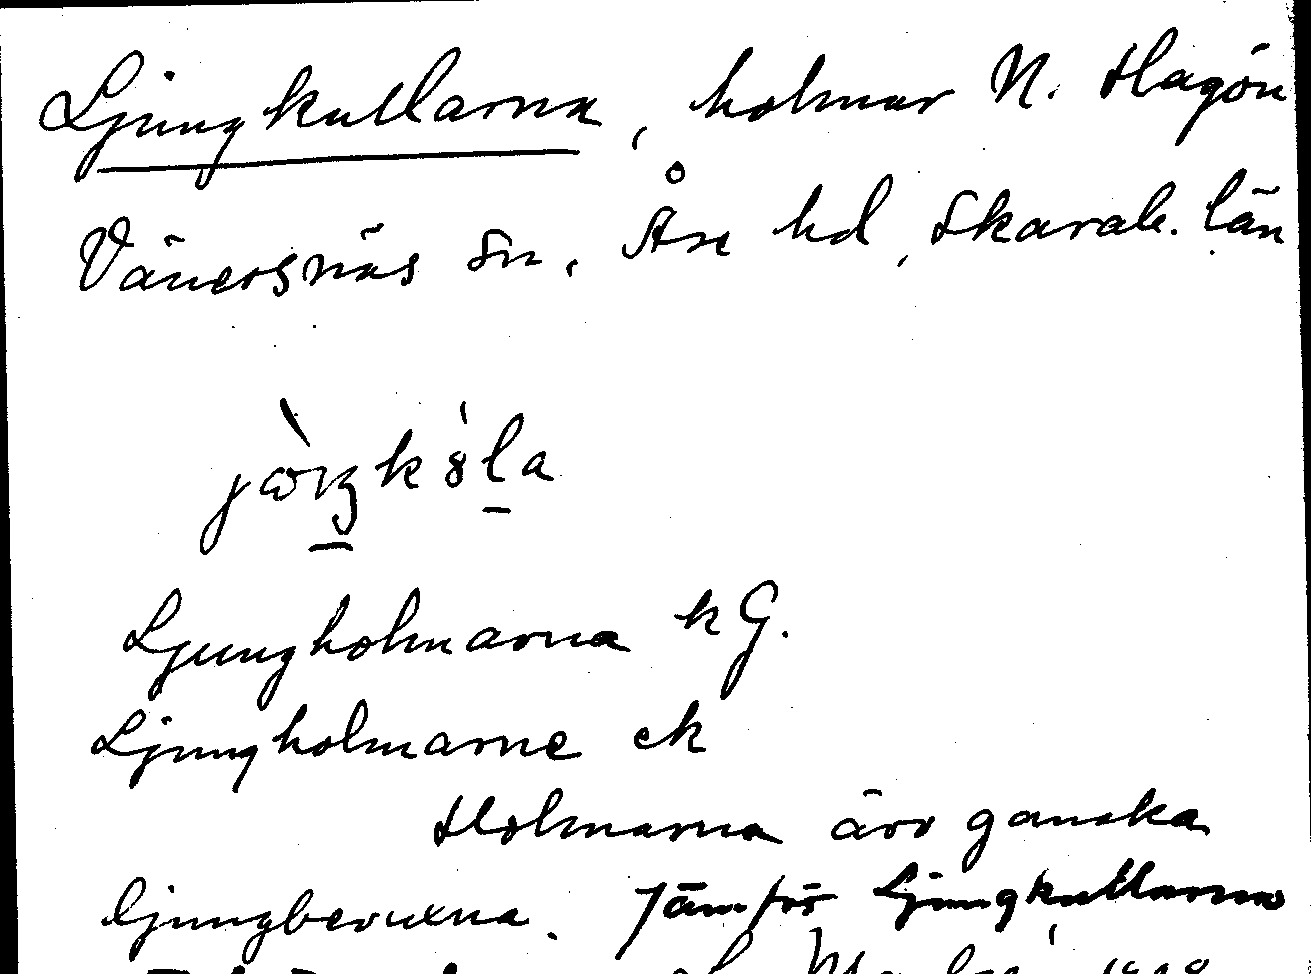 Ljungkullarna, holmar N. Hagön
Vänersnäs sn, Åse hd, Skarab. län
Ljungholmarna kG.
Ljungholmarne ek
Holmarna äro ganska
ljungbevuxna. Jämför Ljungkullarna